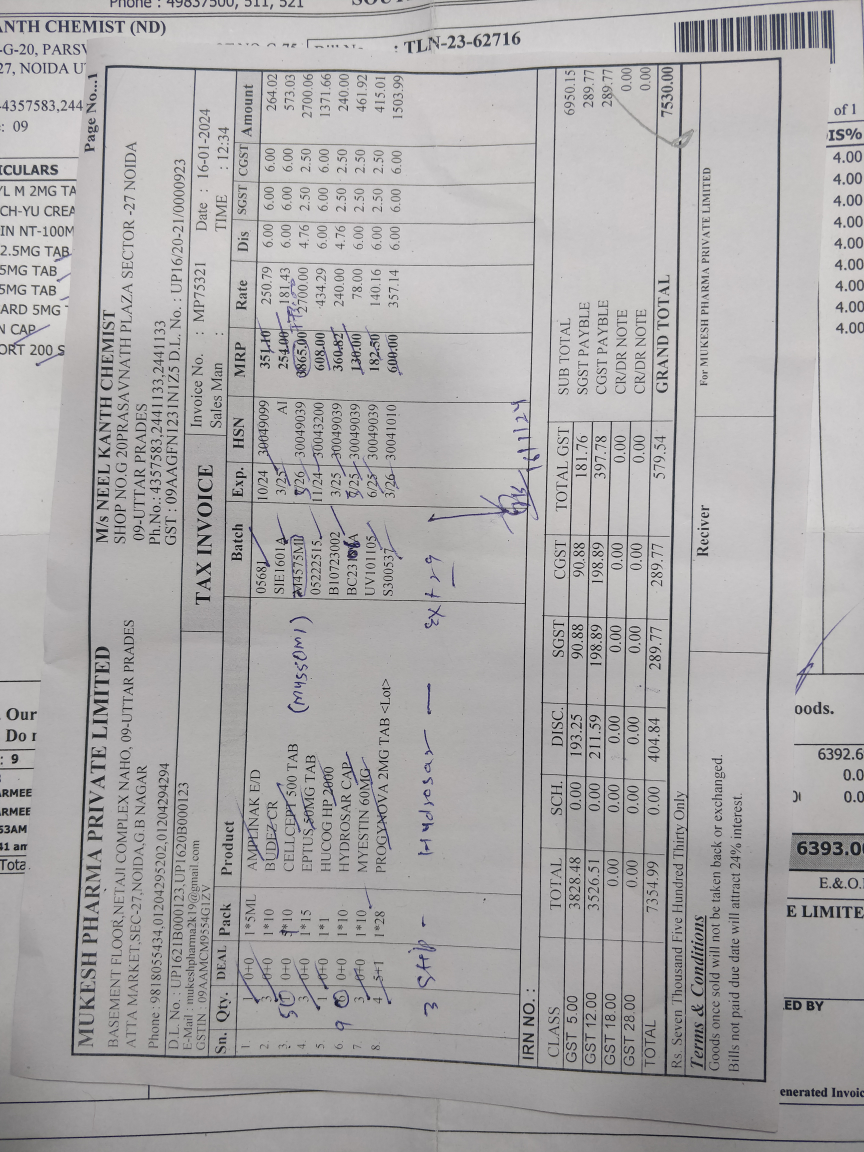 Phone : 49837500, 511, 521
ANTH CHEMIST (ND)
-G-20, PARSV
27, NOIDA U
: TLN-23-62716
-4357583,244
: 09
of 1
ICULARS
IS%
YL M 2MG TA
CH-YU CREA
IN NT-100M
2.5MG TAB
5MG TAB
5MG TAB
ARD 5MG
N CAP
ORT 200 S
4.00
4.00
4.00
4.00
4.00
4.00
4.00
4.00
4.00
Page No...1
MUKESH PHARMA PRIVATE LIMITED
BASEMENT FLOOR,NETAJI COMPLEX NAHO, 09-UTTAR PRADES
ATTA MARKET,SEC-27,NOIDA,G.B NAGAR
Phone :9818055434,01204295202,01204294294
D.L. No. : UP1621B000123,UP1620B000123
E-Mail : mukeshpharma2k19@gmail.com
GSTIN : 09AAMCM9554G1ZV
M/s NEEL KANTH CHEMIST
SHOP NO.G 20PRASAVNATH PLAZA SECTOR -27 NOIDA
09-UTTAR PRADES
Ph.No.: 4357583,2441133,2441133
GST : 09AAGFN1231N1Z5 D.L. No. : UP16/20-21/0000923
TAX INVOICE
Invoice No. : MP75321 Date : 16-01-2024
Sales Man : TIME : 12:34
Sn. Qty. DEAL Pack Product Batch Exp. HSN MRP Rate Dis SGST CGST Amount
1 1 0+0 1*5ML AMPLINAK E/D 05681 10/24 30049099 351.10 250.79 6.00 6.00 6.00 264.02
2. 3 0+0 1*10 BUDEZ CR SIE1601A 3/25 AI 254.00 181.43 6.00 6.00 6.00 573.03
3. 0+0 1*10 CELLCEPT 500 TAB /26 30049039 3865.00 2700.00 4.76 2.50 2.50 2700.06
(Myssomi)
4 3 0+0 1*15 EPTUS 50MG TAB 05222515 11/24 30043200 608.00 434.29 6.00 6.00 6.00 1371.66
5. 1 0+0 1*1 HUCOG HP 2000 B10723002 3/25 30049039 360.82 240.00 4.76 2.50 2.50 240.00
6. 9 6 0+0 1*10 HYDROSAR CAP /25 30049039 130.00 78.00 6.00 2.50 2.50 461.92
7. 3 0+0 1*10 MYESTIN 60MG UV101105 6/25 30049039 182.50 140.16 6.00 2.50 2.50 415.01
8. 4 5+1 1*28 PROGYNOVA 2MG TAB <Lot> S300537 3/26 30041010 600.00 357.14 6.00 6.00 6.00 1503.99
3 Strip - Hydrosar - Extra
16/1/24
IRN NO. :
CLASS TOTAL SCH. DISC. SGST CGST TOTAL GST
GST 5.00 3828.48 0.00 193.25 90.88 90.88 181.76
GST 12.00 3526.51 0.00 211.59 198.89 198.89 397.78
GST 18.00 0.00 0.00 0.00 0.00 0.00 0.00
GST 28.00 0.00 0.00 0.00 0.00 0.00 0.00
TOTAL 7354.99 0.00 404.84 289.77 289.77 579.54
SUB TOTAL 6950.15
SGST PAYBLE 289.77
CGST PAYBLE 289.77
CR/DR NOTE 0.00
CR/DR NOTE 0.00
GRAND TOTAL 7530.00
Rs. Seven Thousand Five Hundred Thirty Only
Terms & Conditions
Goods once sold will not be taken back or exchanged.
Bills not paid due date will attract 24% interest.
Reciver
For MUKESH PHARMA PRIVATE LIMITED
Our
Do n
: 9
ARMEE
ARMEE
53AM
41 am
Tota
oods.
6392.6
0.0
0.0
6393.00
E.&O.
E LIMITE
ED BY
enerated Invoic